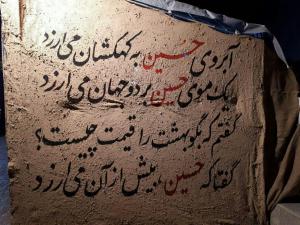 آبروی حسین به کهکشان می ارزد
یک موی حسین بر دو جهان می ارزد
گفتم که بگو بهشت را قیمت چیست؟
گفتا که حسین، بیش از آن می ارزد